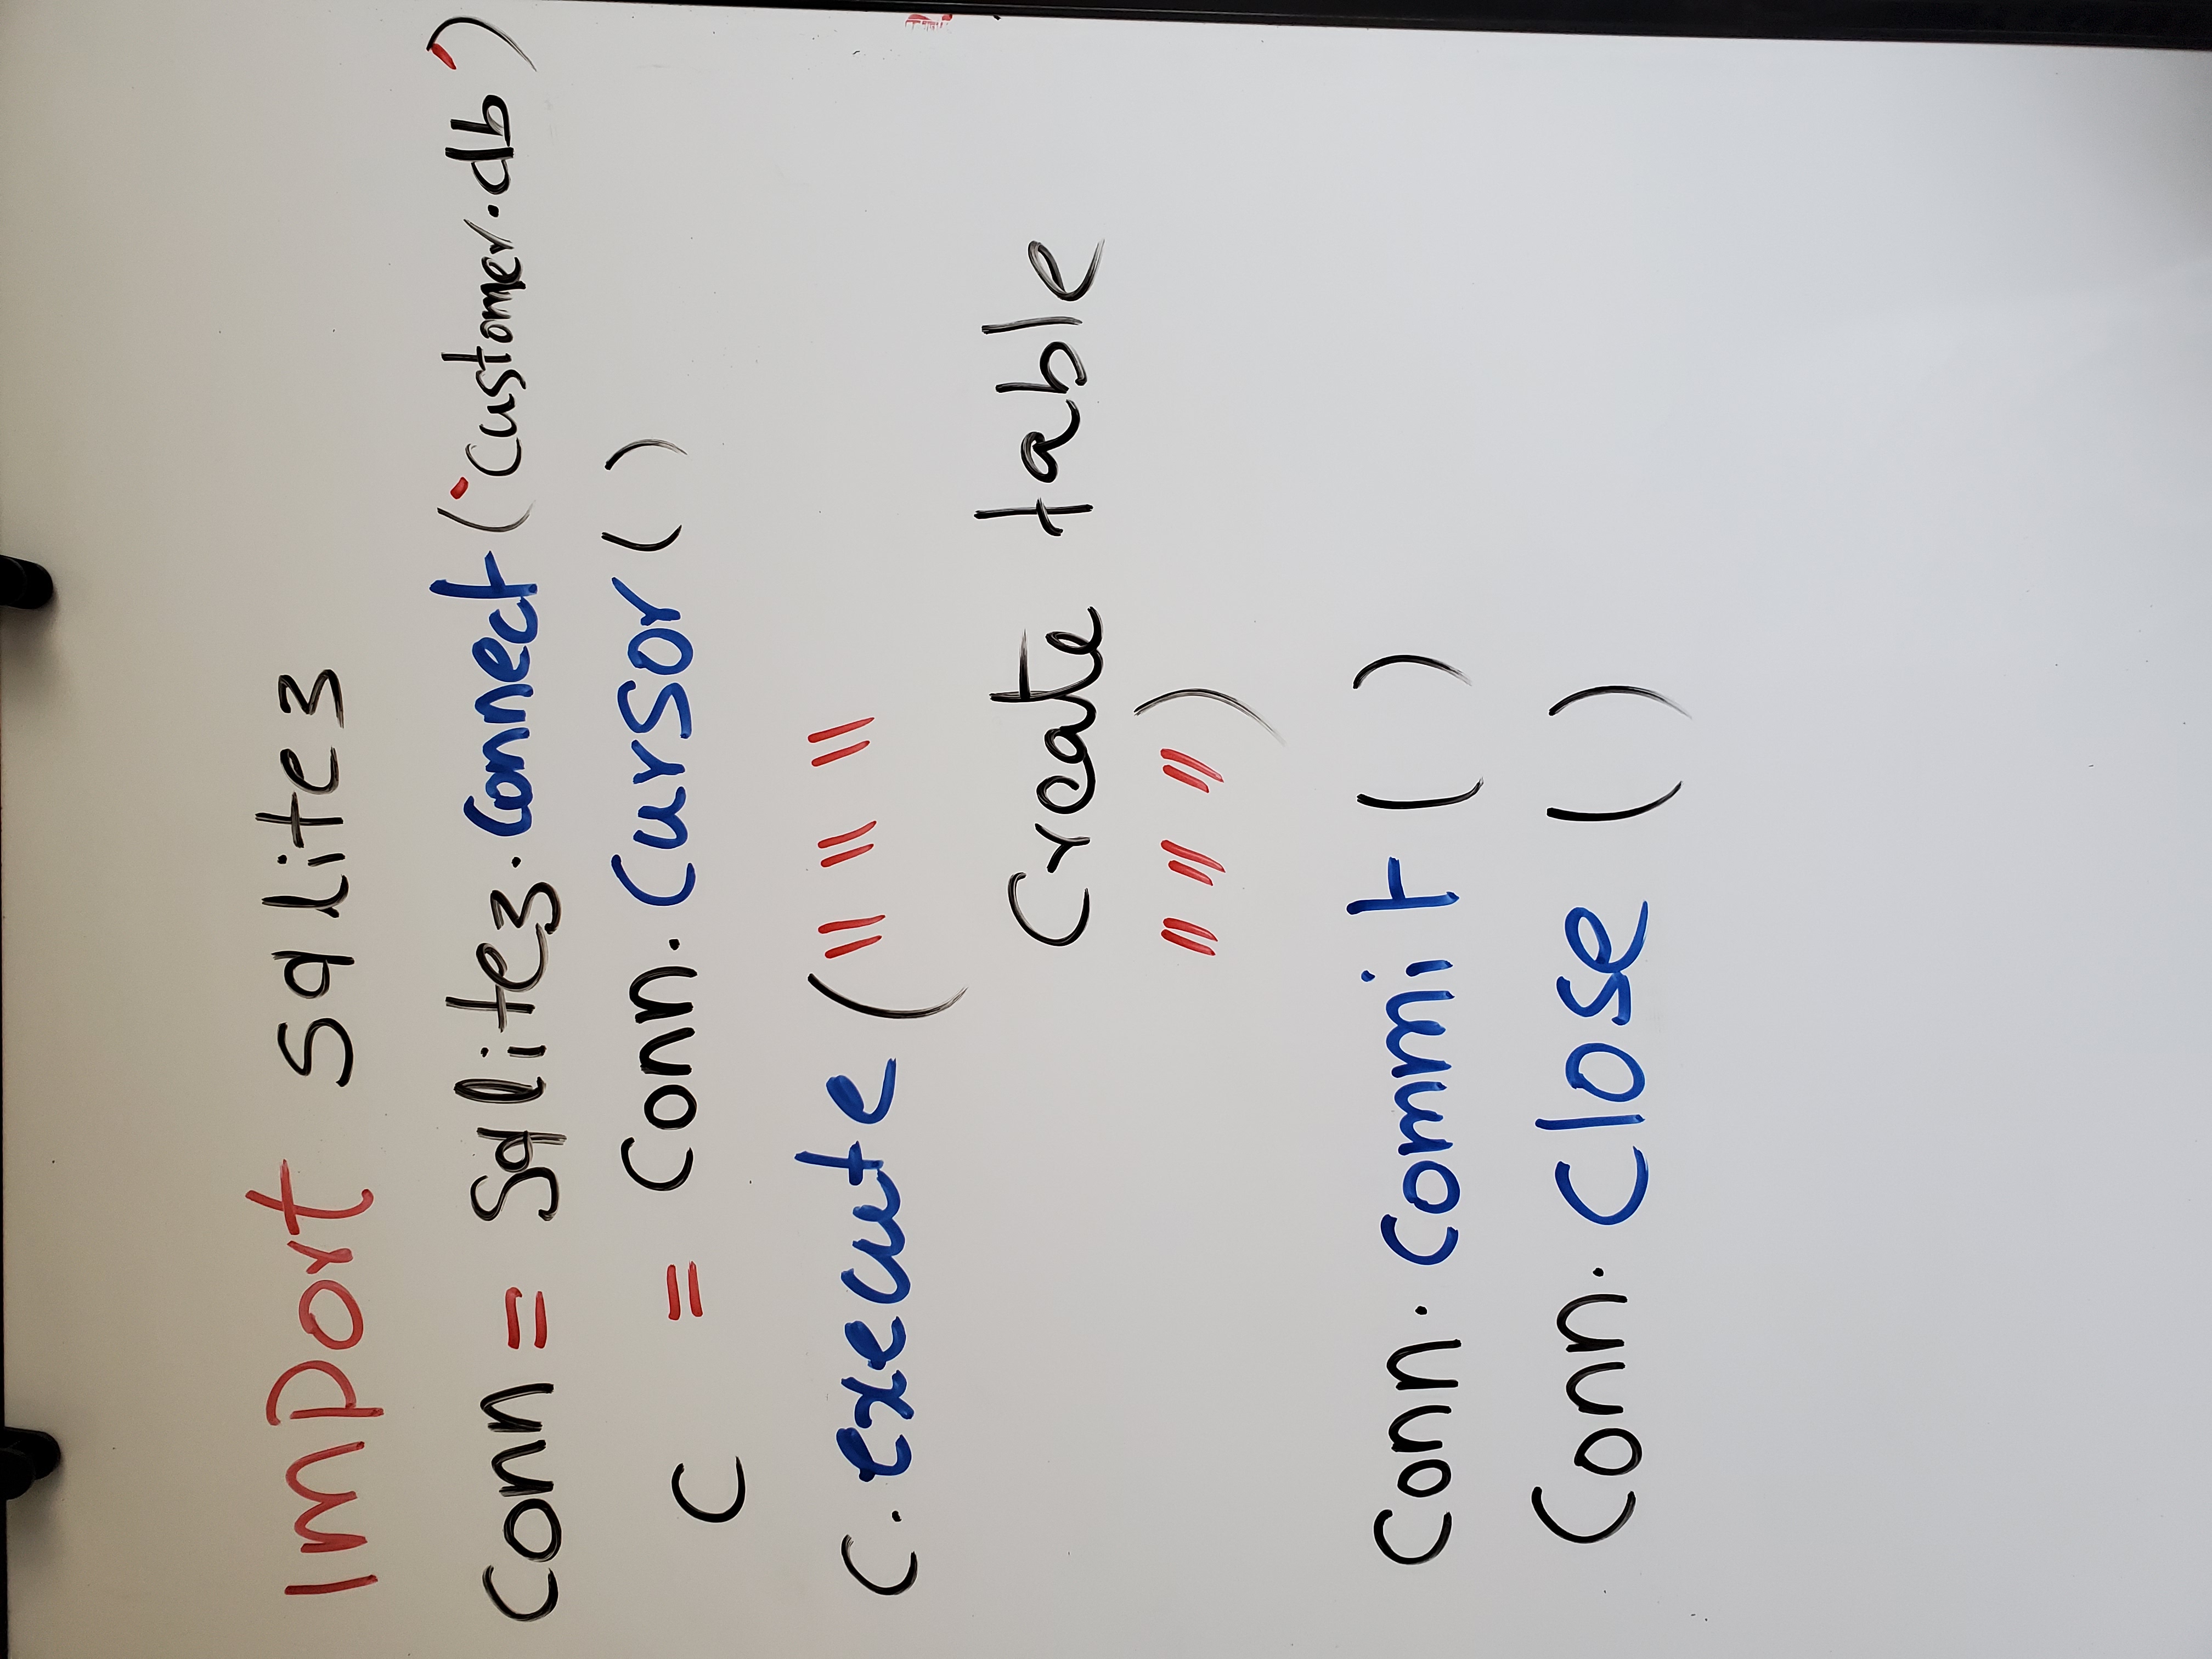 import sqlite3
conn = sqlite3.connect('customer.db')
c = conn.cursor()
c.execute("""
create table
""")
conn.commit()
conn.close()